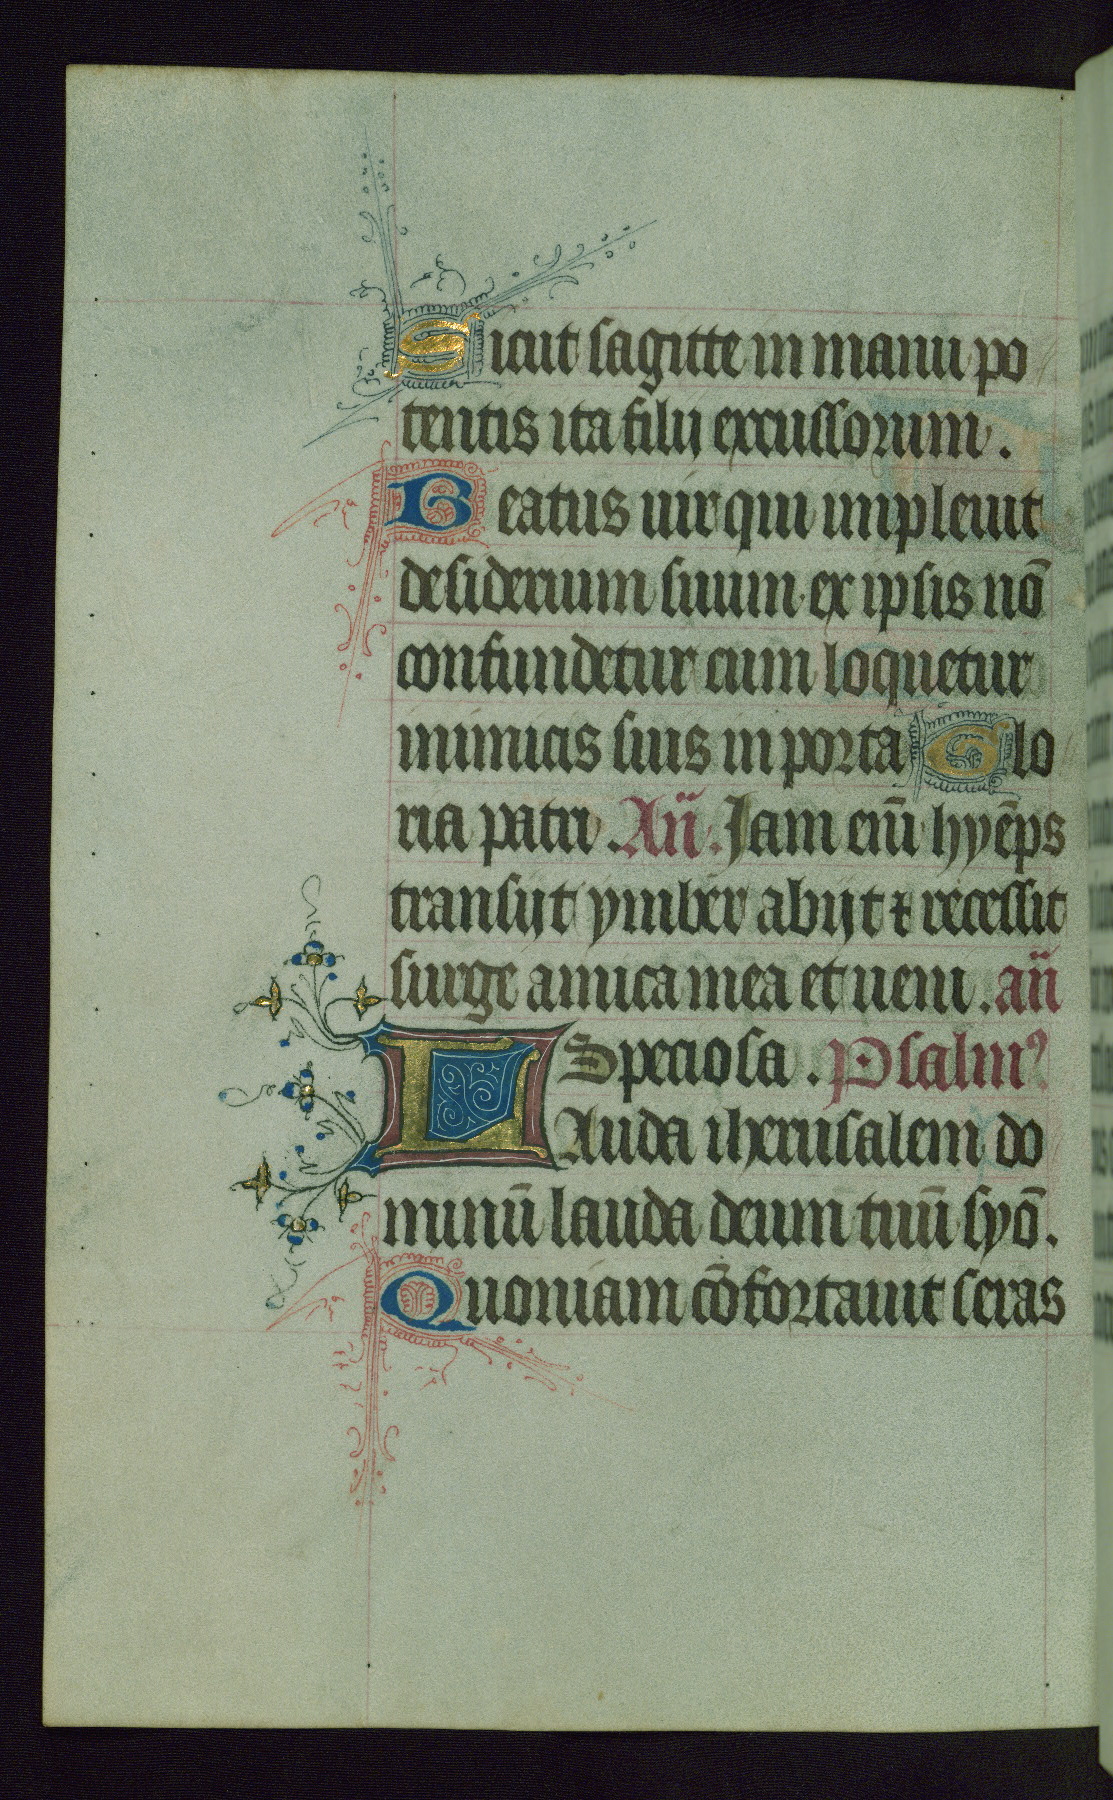 Sicut sagitte in manu po
tentis ita filij excussorum.
Beatus uir qui impleuit
desiderium suum ex ipsis nō
confundetur cum loquetur
inimicis suis in porta Glo
ria patri. An̄. Jam em̄ hyēps
transijt ymber abijt ⁊ recessit
surge amica mea et ueni. an̄
Speciosa. Psalmꝰ
LAuda iherusalem do
minū lauda deum tuū syō.
Quoniam cōfortauit seras